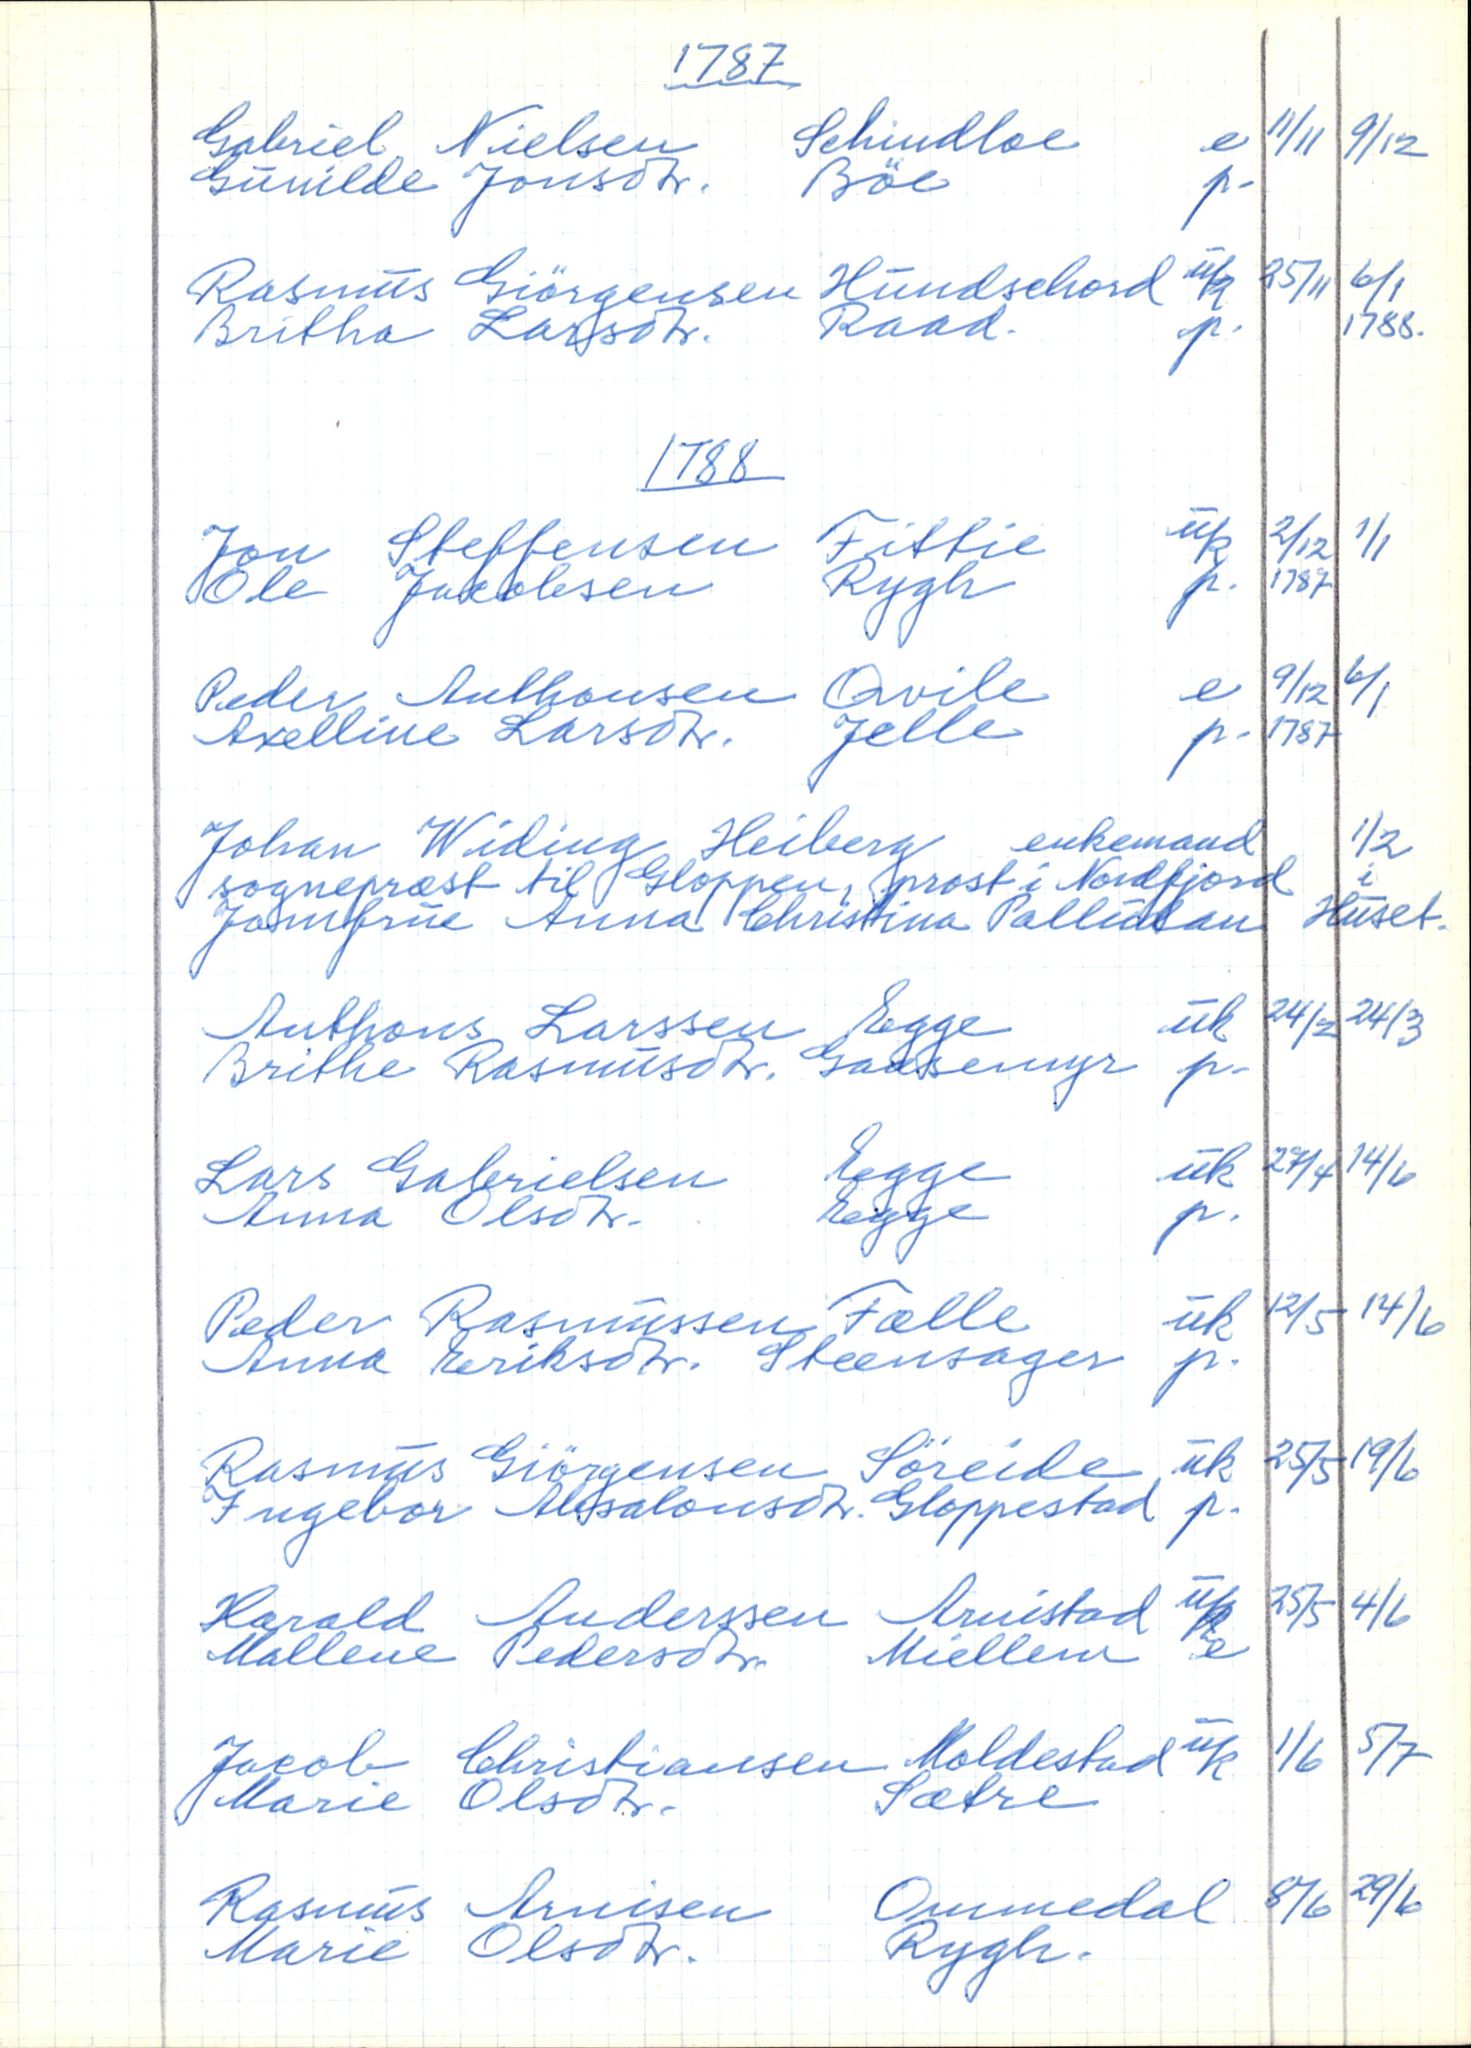 1787
Gabriel Nielsen Schindloe e 11/11 9/12
Gunilde Jonsdtr. Böe p.
Rasmus Giörgensen Hundschord uk 25/11 6/1
Britha Larsdtr. Raad. p. 1788.
1788
Jon Steffensen Fittie uk 2/12 1/1
Ole Jacobsen Rygh p. 1787
Peder Anthonsen Qvile e 9/12 6/1
Axelline Larsdtr. Jelle p. 1787
Johan Widing Heiberg enkemand 1/2
sognepræst til Gloppen, prost i Nordfjord i
Jomfrue Anna Christina Palludan Huset.
Anthons Larssen Egge uk 24/2 24/3
Brithe Rasmusdtr. Gaasemyr p.
Lars Gabrielsen Egge uk 27/4 14/6
Anna Olsdtr. Egge p.
Peder Rasmussen Fælle uk 12/5 14/6
Anna Eriksdtr. Steensager p.
Rasmus Giörgensen Söreide uk 25/5 19/6
Ingebor Absalonsdtr. Gloppestad p.
Harald Anderssen Arnistad uk 25/5 4/6
Mallene Pedersdtr. Miellem e
Jacob Christiansen Moldestad uk 1/6 5/7
Marie Olsdtr. Sætre
Rasmus Arnisen Ommedal 8/6 29/6
Marie Olsdtr. Rygh.